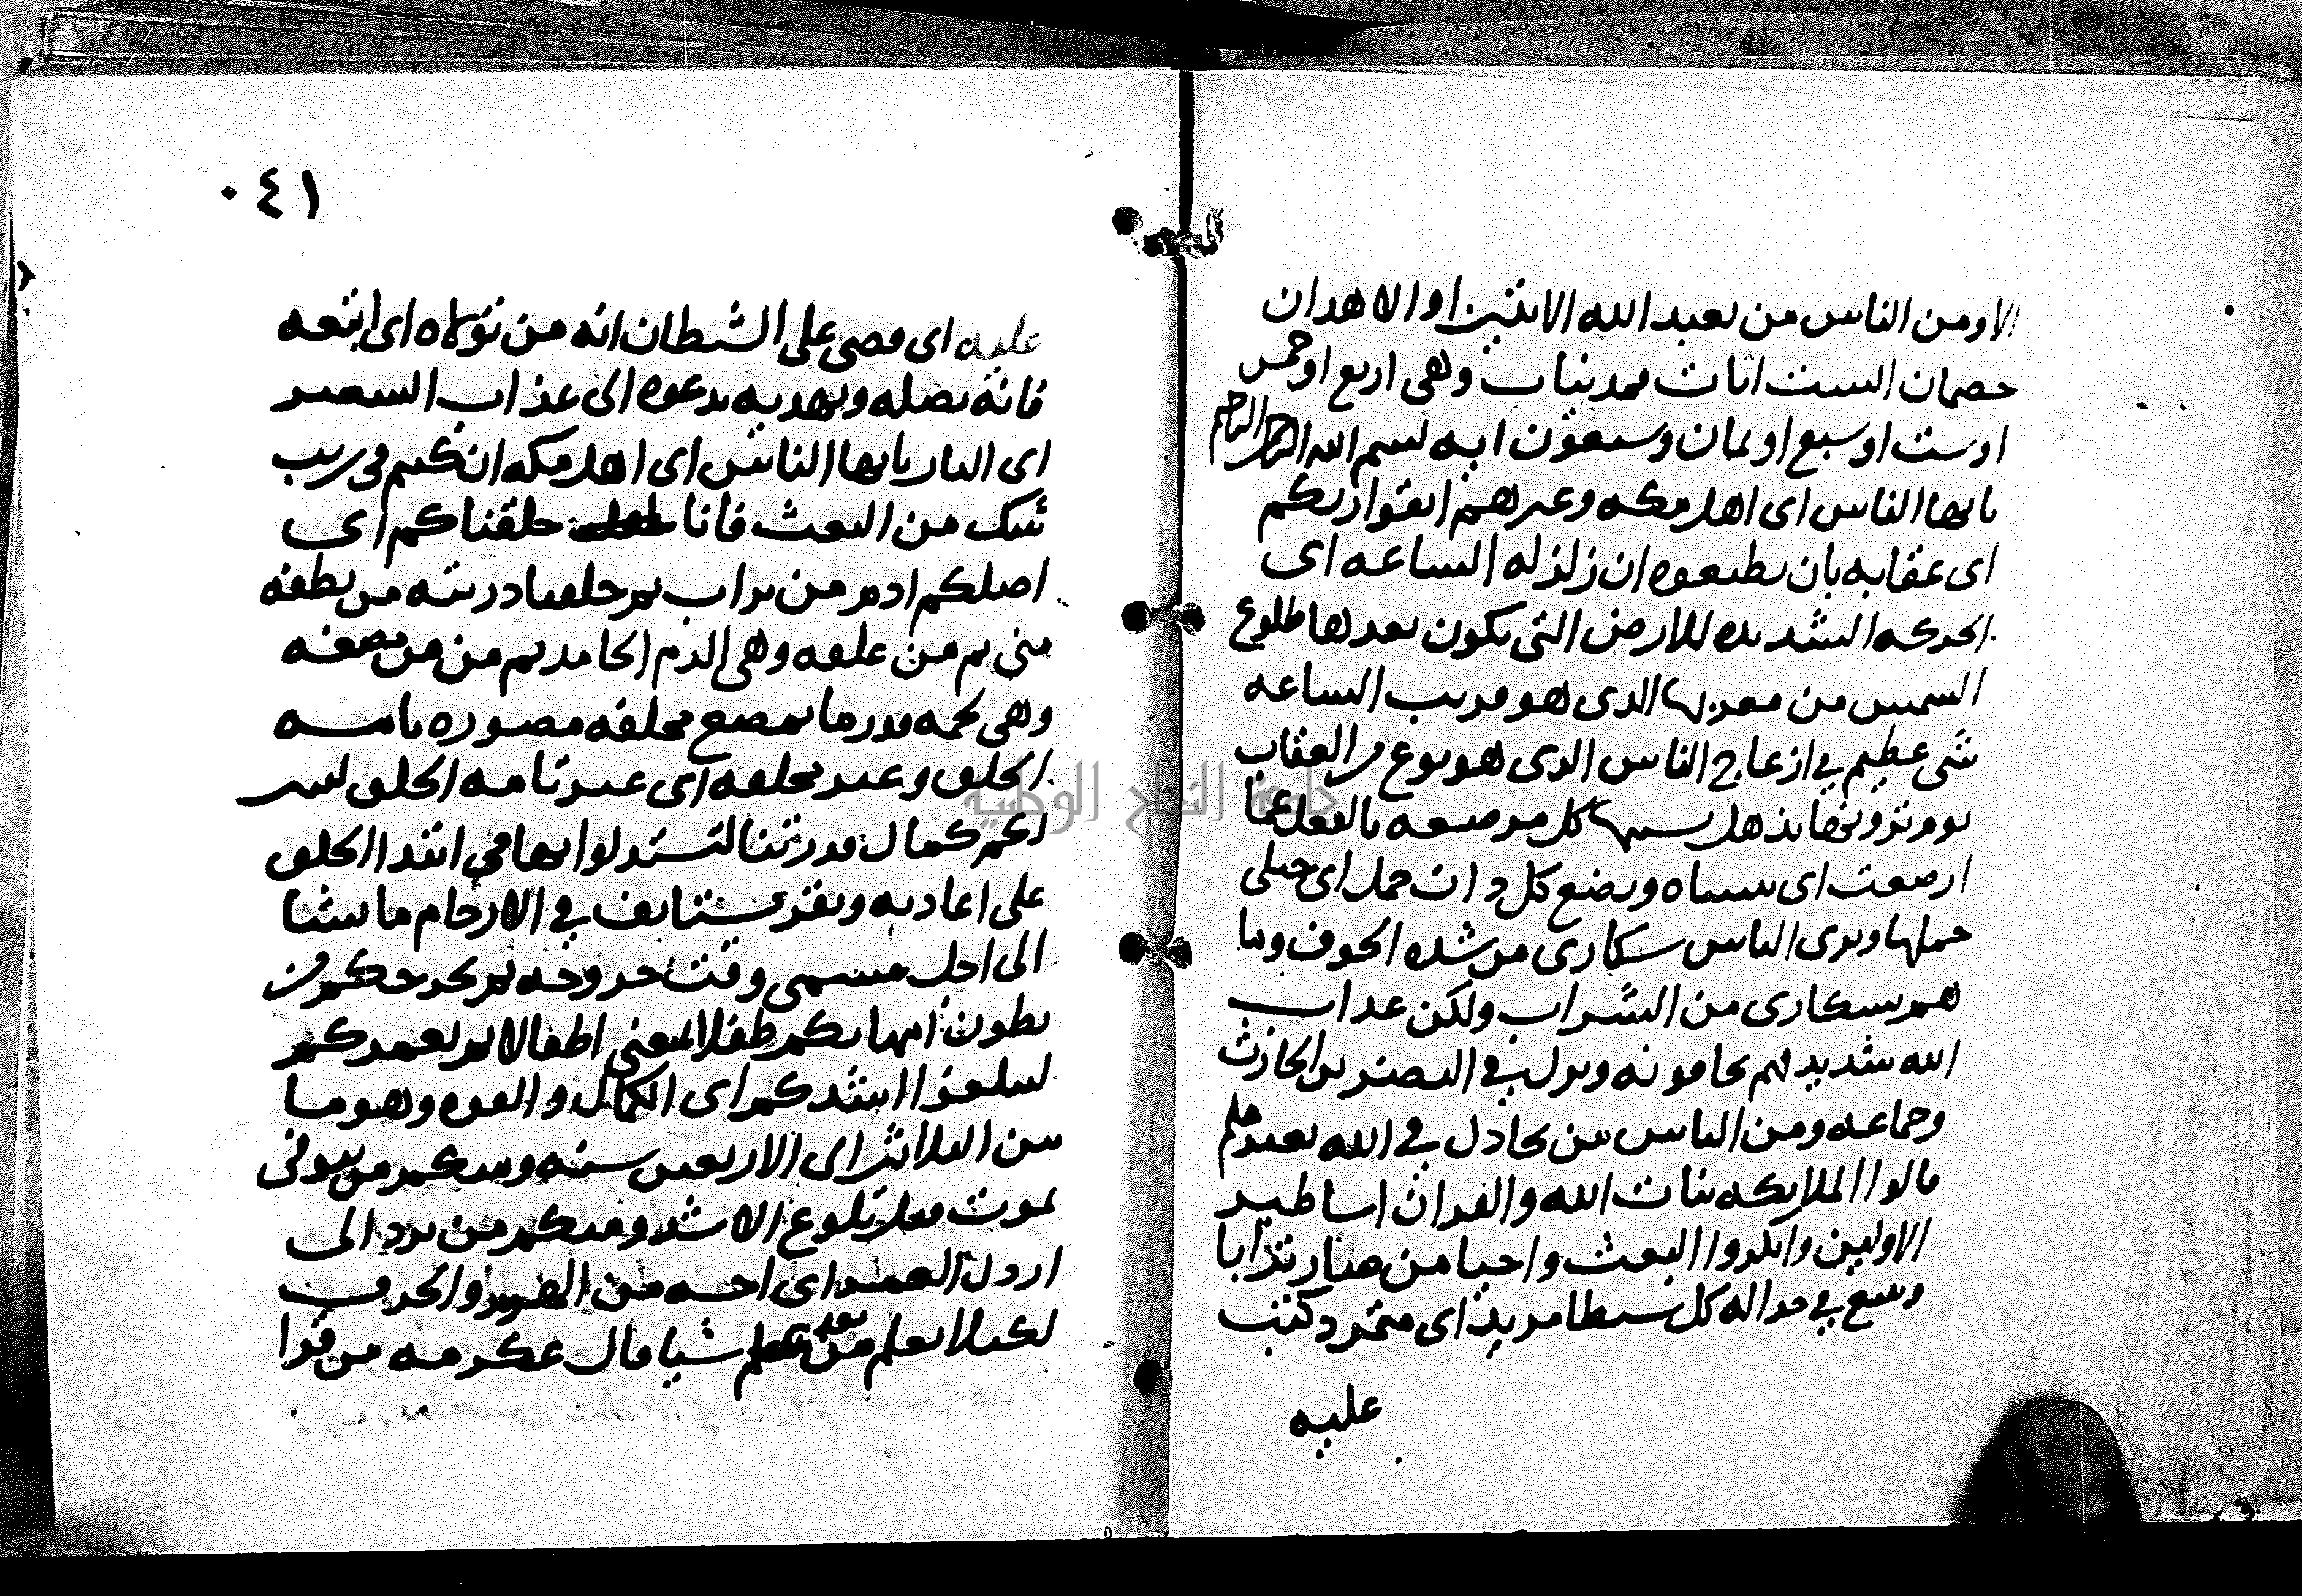 الا ومن الناس من يعبد الله الايتين او الا هدان
خصمان الست ايات فمدنيات وهى اربع او خمس
او ست او سبع او ثمان وسبعون ايه بسم الله الرحمن الرحيم
يايها الناس اى اهل مكه وغيرهم اتقوا ربكم
اى عقابه بان تطيعوه ان زلزله الساعه اى
الحركه الشديده للارض التى يكون بعدها طلوع
الشمس من مغربها الدى هو قريب الساعه
شى عظيم في ازعاج الناس الدى هو نوع من العقاب
يوم ترونها تذهل بسببها كل مرضعه بالفعل عما
ارضعت اى تنساه وتضع كل دات حمل اى حبلى
حملها وترى الناس سكارى من شده الخوف وما
هم بسكارى من الشراب ولكن عداب
الله شديد فهم يخافونه ونزل في النضر بن الحارث
وجماعه ومن الناس من يجادل في الله بغير علم
قالوا الملايكه بنات الله والقران اساطير
الاولين وانكروا البعث واحيا من صار ترابا
ويتبع في جداله كل شيطا مريد اى متمرد كتب
عليه
٠٤١
عليه اى قضى على الشيطان انه من تولاه اى اتبعه
فانه يضله ويهديه يدعوه الى عذاب السعير
اى النار يايها الناس اى اهل مكه ان كنتم في ريب
شك من البعث فانا خلقناكم اى
اصلكم ادم من تراب ثم خلقنا دريته من نطفه
منى ثم من علقه وهى الدم الجامد ثم من من مضغه
وهى لحمه قدر ما يمضغ مخلقه مصوره تامه
الخلق وغير مخلقه اى غير تامه الخلق لنبين
لكم كمال قدرتنا لتستدلوا بها في ابتدا الخلق
على اعادته ونقر مستانف في الارحام ما نشا
الى اجل مسمى وقت خروجه ثم نخرجكم من
بطون امهاتكم طفلا المعنى اطفالا ثم نعمركم
لتبلغوا اشدكم اى الكمال والقوه وهو ما
بين الثلاثين اى الاربعين سنه ومنكم من يتوفى
يموت قبل بلوغ الاشد ومنكم من يرد الى
اردل العمر اى اخسه من الهرم والخرف
لكيلا يعلم من بعد علم شيا قال عكرمه من قرا